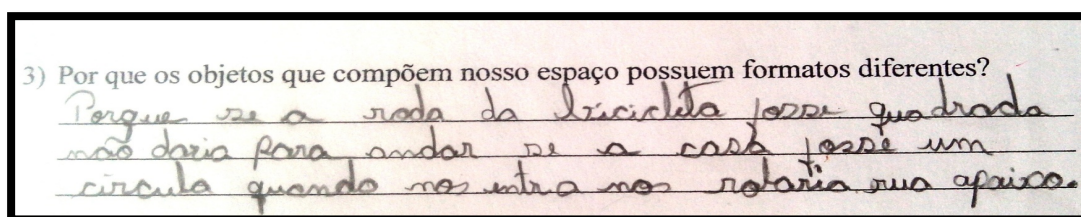 3) Por que os objetos que compõem nosso espaço possuem formatos diferentes?
Porque se a roda da bicicleta fosse quadrada
não daria para andar se a casa fosse um
circulo quando nos entra nos rolaria rua apaixo.